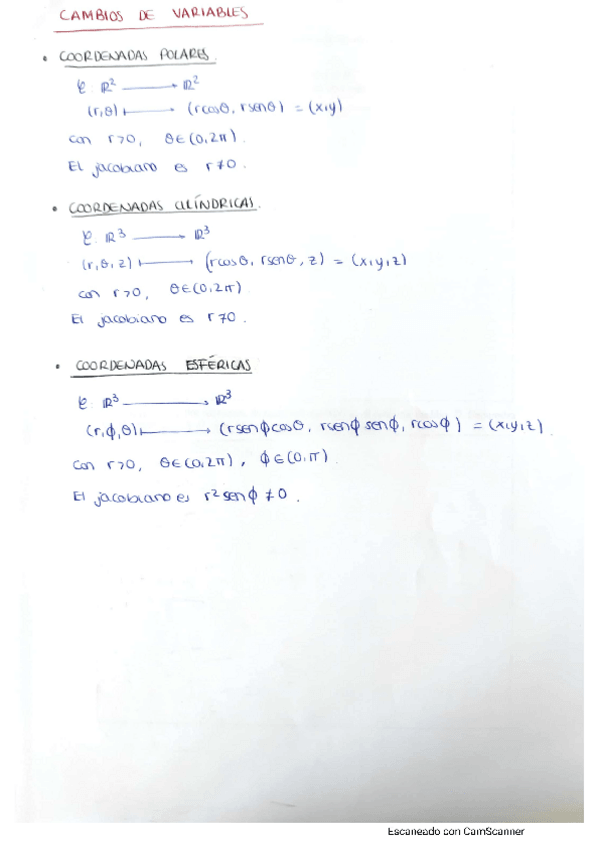 CAMBIOS DE VARIABLES
• COORDENADAS POLARES.
φ: ℝ² ⟶ ℝ²
(r,θ) ⟼ (rcosθ, rsenθ) = (x,y)
con r>0, θ∈(0,2π).
El jacobiano es r≠0.
• COORDENADAS CILÍNDRICAS.
φ: ℝ³ ⟶ ℝ³
(r,θ,z) ⟼ (rcosθ, rsenθ, z) = (x,y,z)
con r>0, θ∈(0,2π)
El jacobiano es r≠0.
• COORDENADAS ESFÉRICAS
φ: ℝ³ ⟶ ℝ³
(r,ϕ,θ) ⟼ (rsenϕcosθ, rsenϕ senϕ, rcosϕ) = (x,y,z).
Con r>0, θ∈(0,2π), ϕ∈(0,π).
El jacobiano es r²senϕ ≠0.
Escaneado con CamScanner